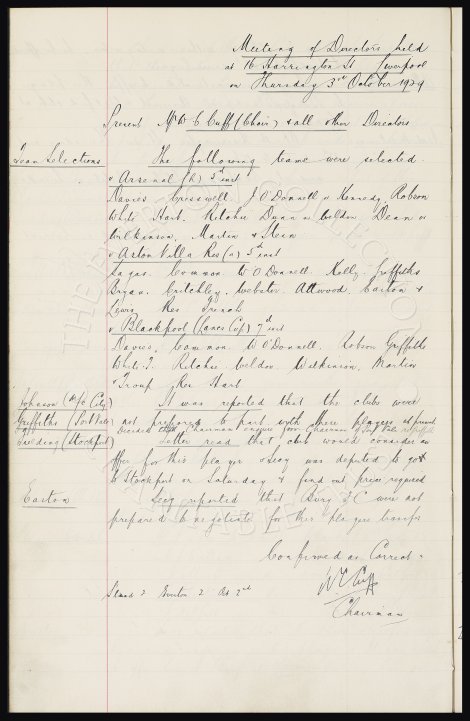 Meeting of Directors held
at 76 Harrington St Liverpool
on Thursday 3rd October 1929
Present Mr W C Cuff (Chair) & all other Directors
Team Selections
The following teams were selected
v Arsenal (h) 5th inst
Davies Cresswell J O'Donnell Kennedy Robson
White Hart. Ritchie Dunn or Weldon Dean or
Wilkinson, Martin & Stein
v Aston Villa Res (a) 5th inst
Common W O'Donnell Kelly Griffiths
Bryan. Critchley. Webster. Attwood. Easton &
Lewis Res French
v Blackpool (Lancs Cup) 7th inst
Davies, Common W O'Donnell. Robson Griffiths
White T. Ritchie Weldon Wilkinson, Martin
Troup Res Hart
Johnson (M/c City)
Griffiths (Port Vale)
It was reported that the clubs were
not prepared to part with these players at present
Decided that Chairman enquire from Chairman of Port Vale
(Stockport)
Letter read that club would consider an
offer for this player & Secy was deputed to go
to Stockport on Saturday & find out price required
Easton
Secy reported that Bury F C were not
prepared to negotiate for this players transfer
Confirmed as Correct
W C Cuff
Chairman
2 Everton 2 Oct 2nd